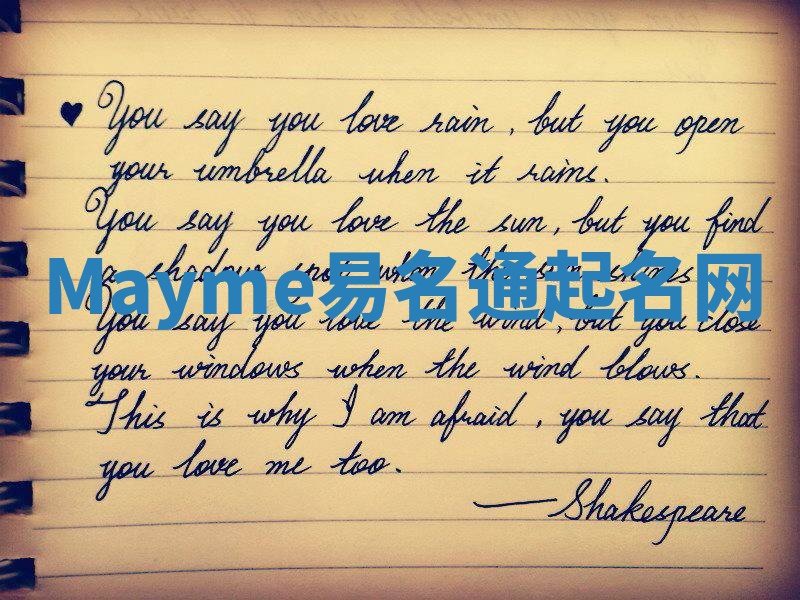 ♥ You say you love rain, but you open
your umbrella when it rains.
You say you love the sun, but you find
a shadow spot when the sun shines
Mayme易名通起名网
You say you love the wind, but you close
your windows when the wind blows.
This is why I am afraid, you say that
you love me too.
— Shakespeare